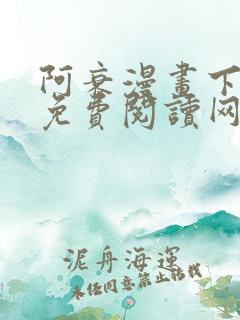 阿衰漫畫下
免費閱讀网
泥舟海運
未任同意禁止轉载